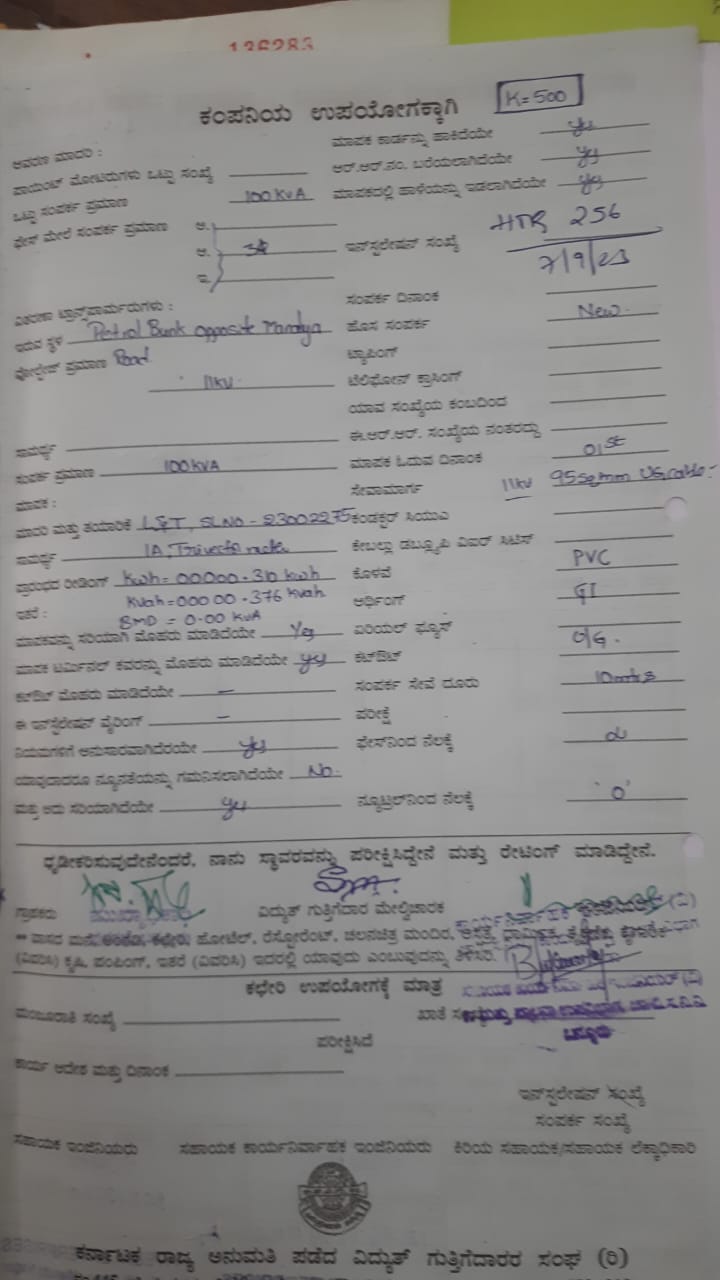 136283
ಕಂಪನಿಯ ಉಪಯೋಗಕ್ಕಾಗಿ K=500
ಆವರಣ ಮಾದರಿ : ಮಾಪಕ ಕಾರ್ಡನ್ನು ಹಾಕಿದೆಯೇ yes
ಪಾಯಿಂಟ್ ಮೋಟರುಗಳು ಒಟ್ಟು ಸಂಖ್ಯೆ ಆರ್.ಆರ್.ನಂ. ಬರೆಯಲಾಗಿದೆಯೇ yes
ಒಟ್ಟು ಸಂಪರ್ಕ ಪ್ರಮಾಣ 100 KVA ಮಾಪಕದಲ್ಲಿ ಹಾಳೆಯನ್ನು ಇಡಲಾಗಿದೆಯೇ yes
ಫೇಸ್ ಮೇಲೆ ಸಂಪರ್ಕ ಪ್ರಮಾಣ ಅ.
ಆ. ಇನ್‌ಸ್ಟಲೇಷನ್ ಸಂಖ್ಯೆ HTR 256
ಇ. 7/9/23
ವಿತರಣಾ ಟ್ರಾನ್ಸ್‌ಫಾರ್ಮರುಗಳು : ಸಂಪರ್ಕ ದಿನಾಂಕ
ಇರುವ ಸ್ಥಳ Petrol Bunk opposite Mandya ಹೊಸ ಸಂಪರ್ಕ New
ವೋಲ್ಟೇಜ್ ಪ್ರಮಾಣ Road ಟ್ಯಾಪಿಂಗ್
11kv ಟೆಲಿಫೋನ್ ಕ್ರಾಸಿಂಗ್
ಯಾವ ಸಂಖ್ಯೆಯ ಕಂಬದಿಂದ
ಸಾಮರ್ಥ್ಯ ಈ.ಆರ್.ಆರ್. ಸಂಖ್ಯೆಯ ನಂತರದ್ದು
ಸಂಪರ್ಕ ಪ್ರಮಾಣ 100 KVA ಮಾಪಕ ಓದುವ ದಿನಾಂಕ 01st
ಮಾಪಕ : ಸೇವಾಮಾರ್ಗ 11kv 95 sqmm UG cable
ಮಾದರಿ ಮತ್ತು ತಯಾರಿಕೆ L&T, SL NO - 23002275 ಕಂಡಕ್ಟರ್ ಸಿಯುಎ
ಸಾಮರ್ಥ್ಯ 1A, Trivector meter ಕೇಬಲ್ಲು ಡಬ್ಲ್ಯೂಪಿ ವಿಐಆರ್ ಸಿಟಿಸ್
ಪ್ರಾರಂಭದ ರೀಡಿಂಗ್ Kwh = 00000.310 kwh ಕೊಳವೆ PVC
ಇತರೆ : Kvah = 00000.376 kvah ಅರ್ಥಿಂಗ್ GI
BMD = 0.00 KVA
ಮಾಪಕವನ್ನು ಸರಿಯಾಗಿ ಮೊಹರು ಮಾಡಿದೆಯೇ Yes ಏರಿಯಲ್ ಫ್ಯೂಸ್ O/G.
ಮಾಪಕ ಟರ್ಮಿನಲ್ ಕವರನ್ನು ಮೊಹರು ಮಾಡಿದೆಯೇ yes ಕಟ್‌ಔಟ್
ಕಟ್‌ಔಟ್ ಮೊಹರು ಮಾಡಿದೆಯೇ - ಸಂಪರ್ಕ ಸೇವೆ ದೂರು 10
ಈ ಇನ್‌ಸ್ಟಲೇಷನ್ ವೈರಿಂಗ್ - ಪರೀಕ್ಷೆ
ನಿಯಮಗಳಿಗೆ ಅನುಸಾರವಾಗಿದೆಯೇ yes ಫೇಸ್‌ನಿಂದ ನೆಲಕ್ಕೆ
ಯಾವುದಾದರೂ ನ್ಯೂನತೆಯನ್ನು ಗಮನಿಸಲಾಗಿದೆಯೇ No.
ಮತ್ತು ಅದು ಸರಿಯಾಗಿದೆಯೇ yes ನ್ಯೂಟ್ರಲ್‌ನಿಂದ ನೆಲಕ್ಕೆ '0'
ಧೃಡೀಕರಿಸುವುದೇನೆಂದರೆ, ನಾನು ಸ್ಥಾವರವನ್ನು ಪರೀಕ್ಷಿಸಿದ್ದೇನೆ ಮತ್ತು ರೇಟಿಂಗ್ ಮಾಡಿದ್ದೇನೆ.
ಗ್ರಾಹಕರು ವಿದ್ಯುತ್ ಗುತ್ತಿಗೆದಾರ ಮೇಲ್ವಿಚಾರಕ
** ವಾಸದ ಮನೆ, ಅಂಗಡಿ, ಕಛೇರಿ, ಹೋಟೆಲ್, ರೆಸ್ಟೋರೆಂಟ್, ಚಲನಚಿತ್ರ ಮಂದಿರ, ಆಸ್ಪತ್ರೆ, ಧಾರ್ಮಿಕ,
(ವಿವರಿಸಿ) ಕೃಷಿ, ಪಂಪಿಂಗ್, ಇತರೆ (ವಿವರಿಸಿ) ಇದರಲ್ಲಿ ಯಾವುದು ಎಂಬುವುದನ್ನು ತಿಳಿಸಿರಿ.
ಕಛೇರಿ ಉಪಯೋಗಕ್ಕೆ ಮಾತ್ರ
ಮಂಜೂರಾತಿ ಸಂಖ್ಯೆ ಖಾತೆ
ಪರೀಕ್ಷಿಸಿದೆ
ಕಾರ್ಯ ಆದೇಶ ಮತ್ತು ದಿನಾಂಕ
ಇನ್‌ಸ್ಟಲೇಷನ್ ಸಂಖ್ಯೆ
ಸಂಪರ್ಕ ಸಂಖ್ಯೆ
ಸಹಾಯಕ ಇಂಜಿನಿಯರು ಸಹಾಯಕ ಕಾರ್ಯನಿರ್ವಾಹಕ ಇಂಜಿನಿಯರು ಕಿರಿಯ ಸಹಾಯಕ/ಸಹಾಯಕ ಲೆಕ್ಕಾಧಿಕಾರಿ
ಕರ್ನಾಟಕ ರಾಜ್ಯ ಅನುಮತಿ ಪಡೆದ ವಿದ್ಯುತ್ ಗುತ್ತಿಗೆದಾರರ ಸಂಘ (ರಿ)